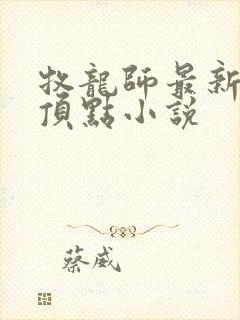 牧龍師最新
頂點小說
蔡威